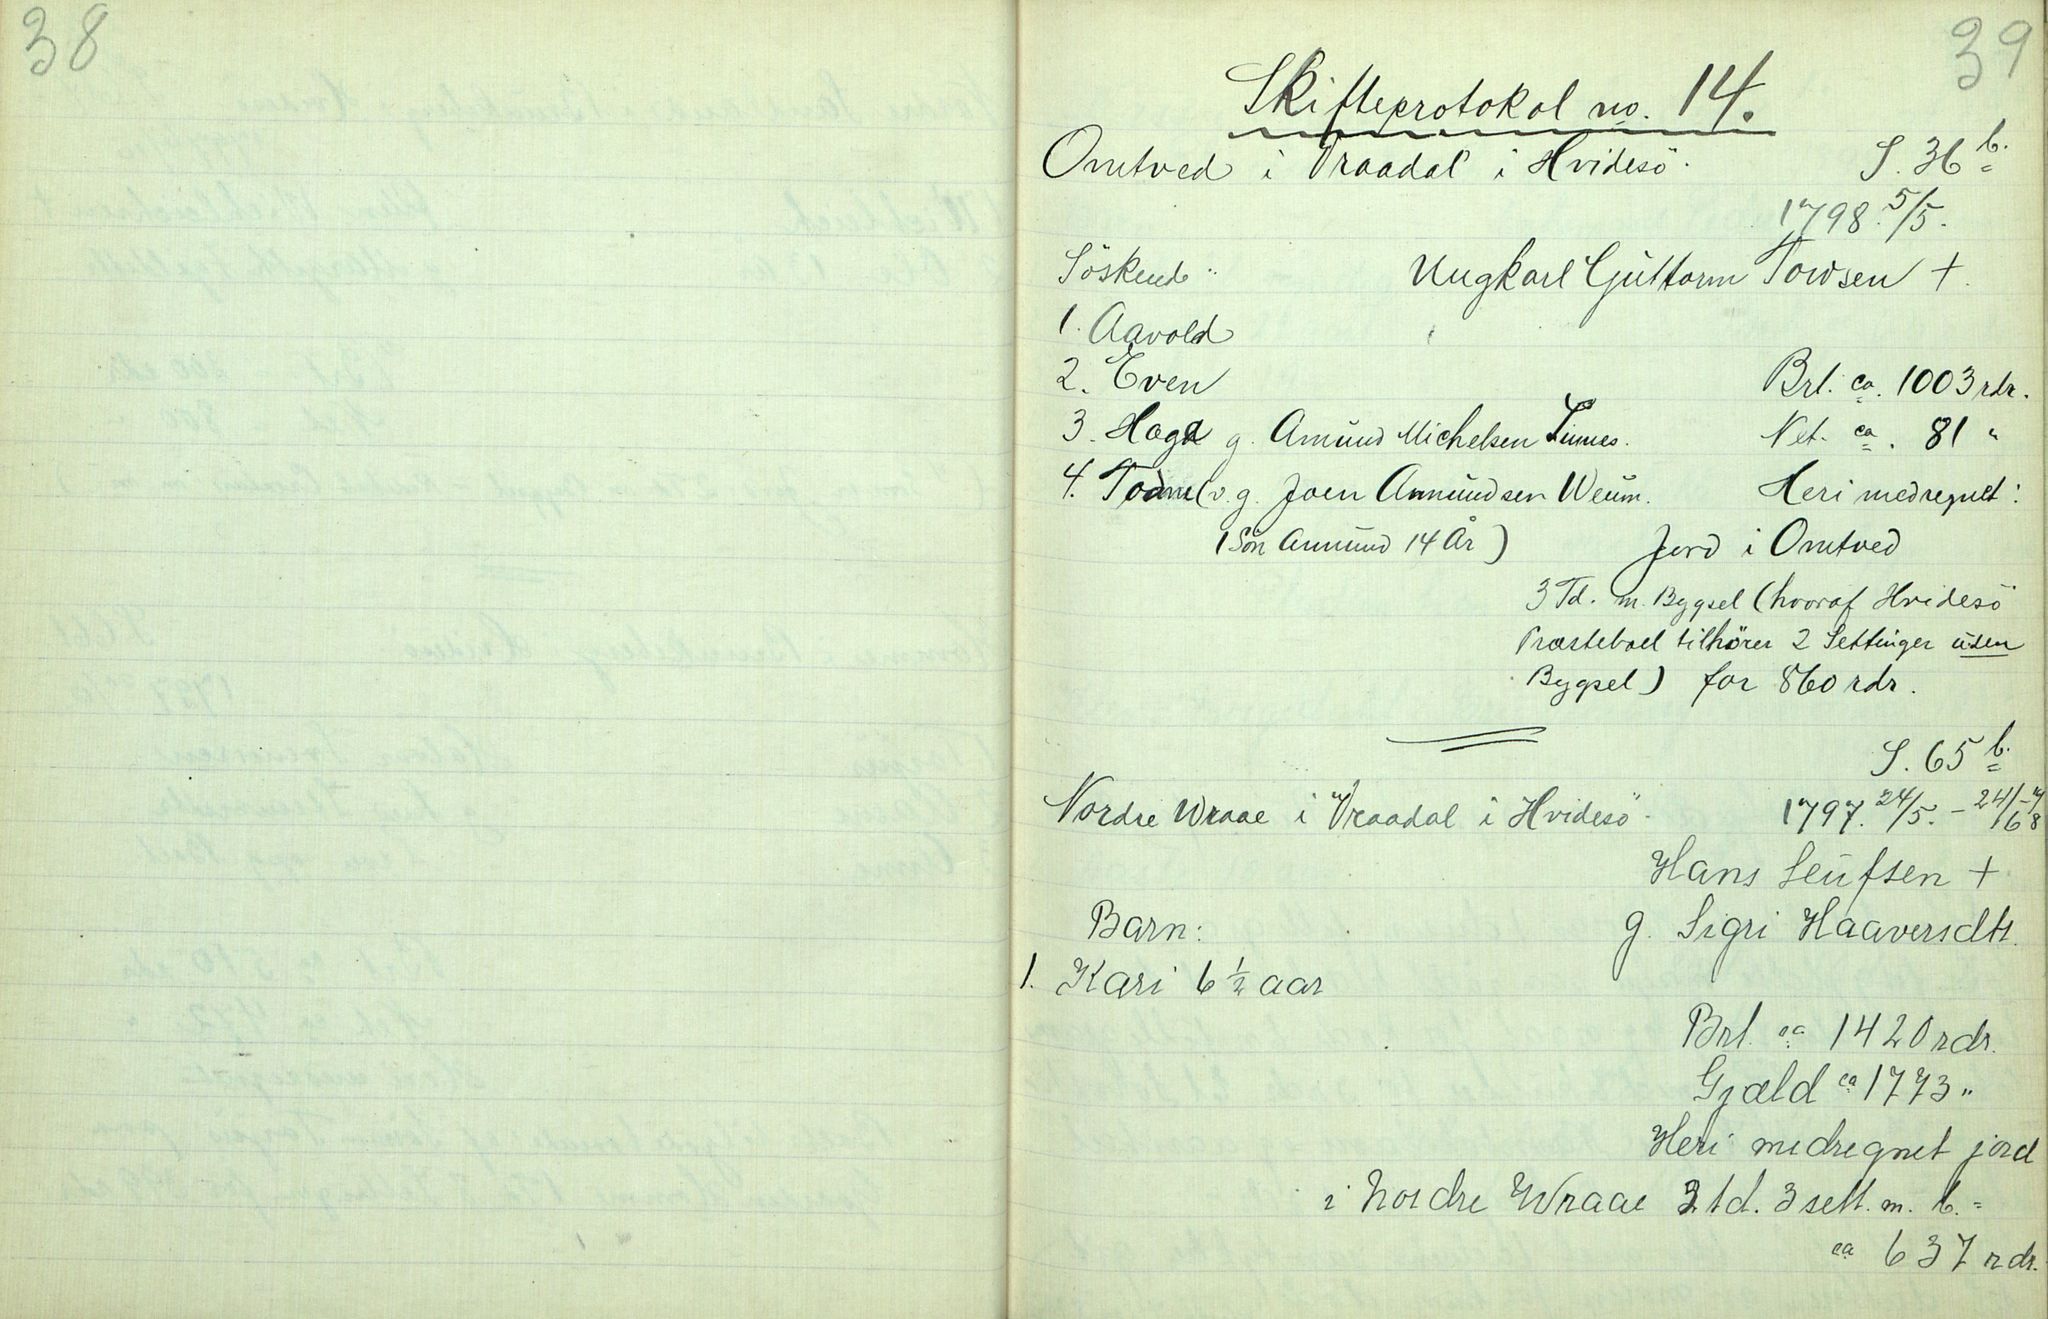 38
39
Skifteprotokol no. 14.
Omtved i Vraadal i Hvidesö. S. 36 b.
1798. 5/5.
Söskende: Ungkarl Guttorm Tovsen +.
1. Aavold
2. Even Brt. ca. 1003 rdr.
3. Hæge g. Amund Michelsen Linnes. Net. ca. 81 "
4. Tone (v. g. Joen Ammundsen Weum. Heri medregnet:
(Sön Ammund 14 År) Jord i Omtved
3 Td. m. Bygsel (hvoraf Hvidesö
Præstebol tilhörer 2 Settinger uden
Bygsel) for 860 rdr.
S. 65 b.
Nordre Wraae i Vraadal i Hvidesö. 1797. 24/5. - 24/6
Hans Leufsen +
Barn: g. Sigri Haaversdtr.
1. Kari 6 1/2 aar
Brt. ca 1420 rdr.
Gjæld ca 1773 "
Heri medregnet jord
i Nordre Wraae 2 td. 3 sett. m. b. =
ca 637 rdr.